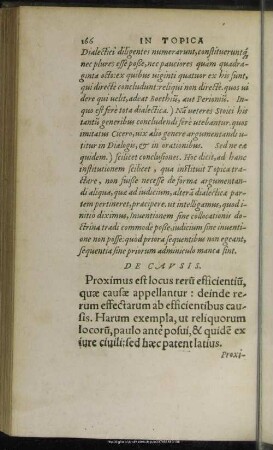 166 IN TOPICA
Dialectici diligentes numerarunt, constituerunt́q;
nec plures esse posse, nec pauciores quàm quadra-
ginta octo: ex quibus uiginti quatuor ex his sunt,
qui directè concludunt: reliqui non directè. quos ui
dere qui uelit, adeat Boëthiũ, aut Perioniũ. In
quo est ferè tota dialectica.) Nã ueteres Stoici his
tantũ generibus concludendi ferè utebantur. quos
imitatus Cicero, uix alio genere argumentandi u-
titur in Dialogis, & in orationibus. Sed ne ea
quidem.) scilicet conclusiones. Hoc dicit, ad hanc
institutionem scilicet, qua instituit Topica tra-
ctare, non fuisse necesse de forma argumentan-
di aliqua, quæ ad iudicium, alterã dialecticæ par-
tem pertineret, præcipere. ut intelligamus, quod i-
nitio diximus, Inuentionem sine collocationis do-
ctrina tradi commodè posse: iudicium sine inuenti-
one non posse: quòd priora sequentibus non egeant,
sequentia sine priorum adminiculo manca sint.
DE CAVSIS.
Proximus est locus rerũ efficientiũ,
quæ causæ appellantur: deinde re-
rum effectarum ab efficientibus cau-
sis. Harum exempla, ut reliquorum
locorũ, paulo antè posui, & quidẽ ex
iure ciuili: sed hæc patent latius.
Proxi-